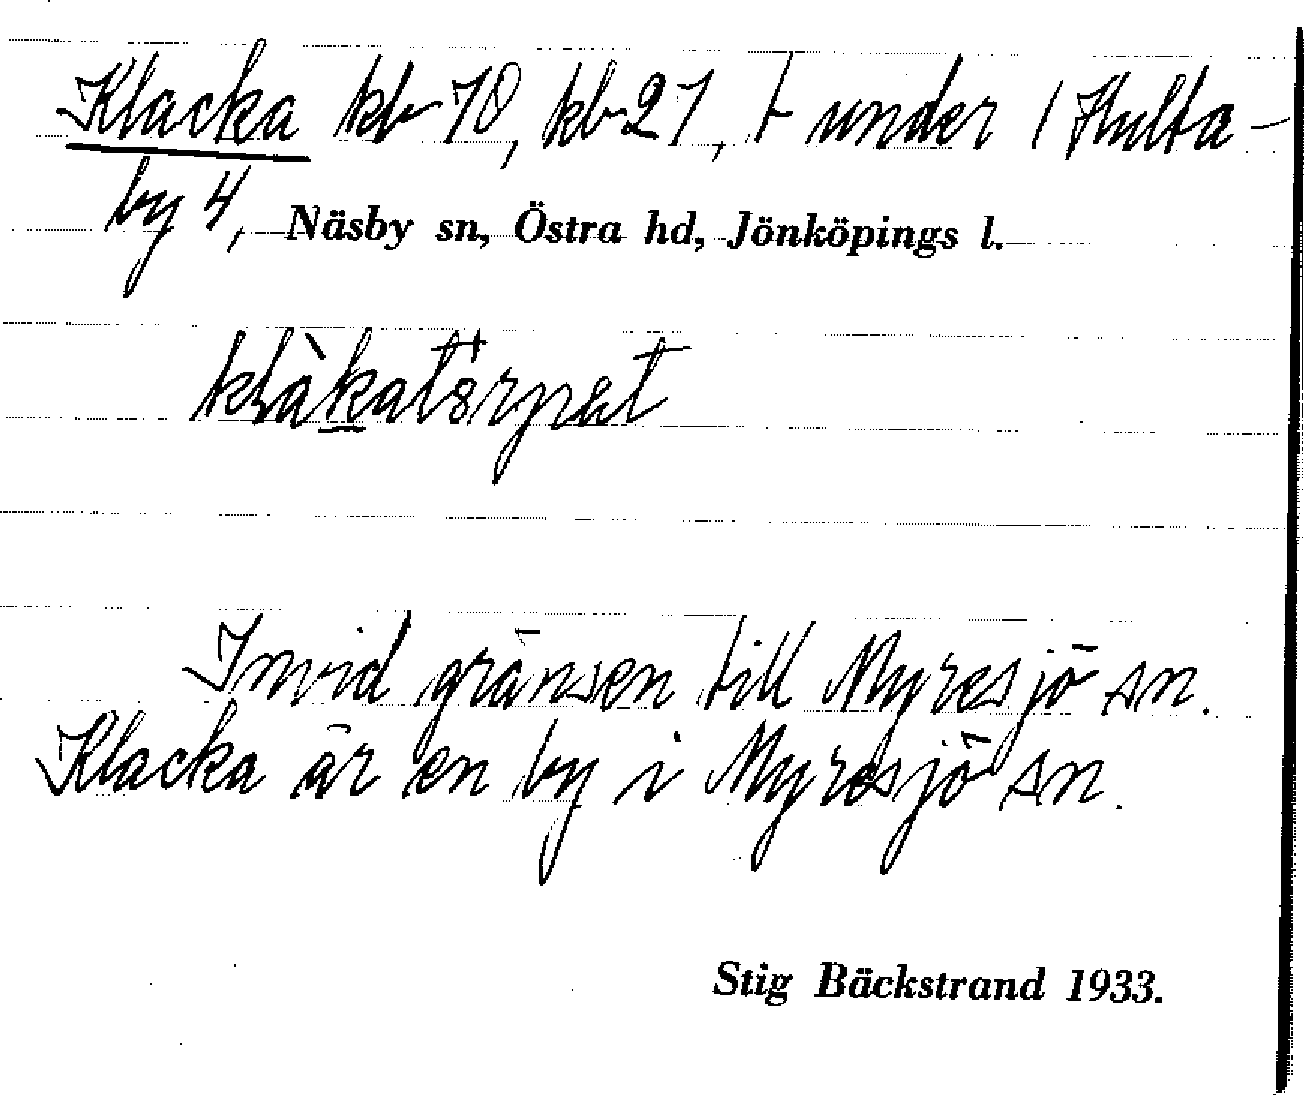 Klacka kb 70, kb 27, t under 1 Hulta-
by 4, Näsby sn, Östra hd, Jönköpings l.
Invid gränsen till Myresjö sn.
Klacka är en by i Myresjö sn.
Stig Bäckstrand 1933.